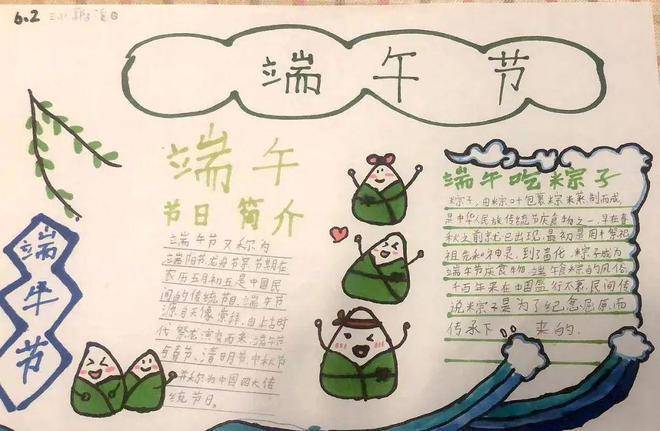 6.2
端午节
端午
节日简介
端午节又称为
端阳节、龙舟节等节期在
农历五月初五是中国民
间的传统节日。端午节
源自天象崇拜,由上古时
代祭龙演变而来。端午节
与春节、清明节、中秋节
并称为中国四大传
统节日。
端午节
端午吃粽子
粽子,由粽叶包裹糯米蒸制而成,
是中华民族传统节庆食物之一,早在春
秋之前就已出现,最初是用来祭祀
祖先和神灵,到了晋代,粽子成为
端午节庆食物。端午食粽的风俗,
千百年来在中国盛行不衰,民间传
说粽子是为了纪念屈原而
传承下来的.